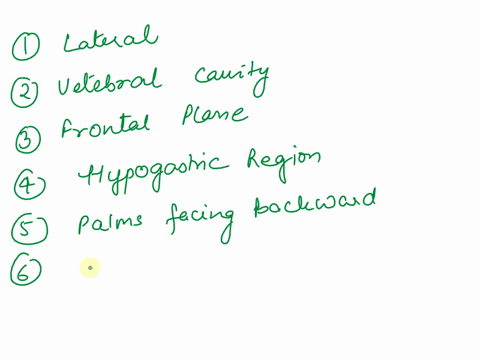 ① Lateral
② Vetebral cavity
③ Frontal Plane
④ Hypogastric Region
⑤ Palms facing backward
⑥